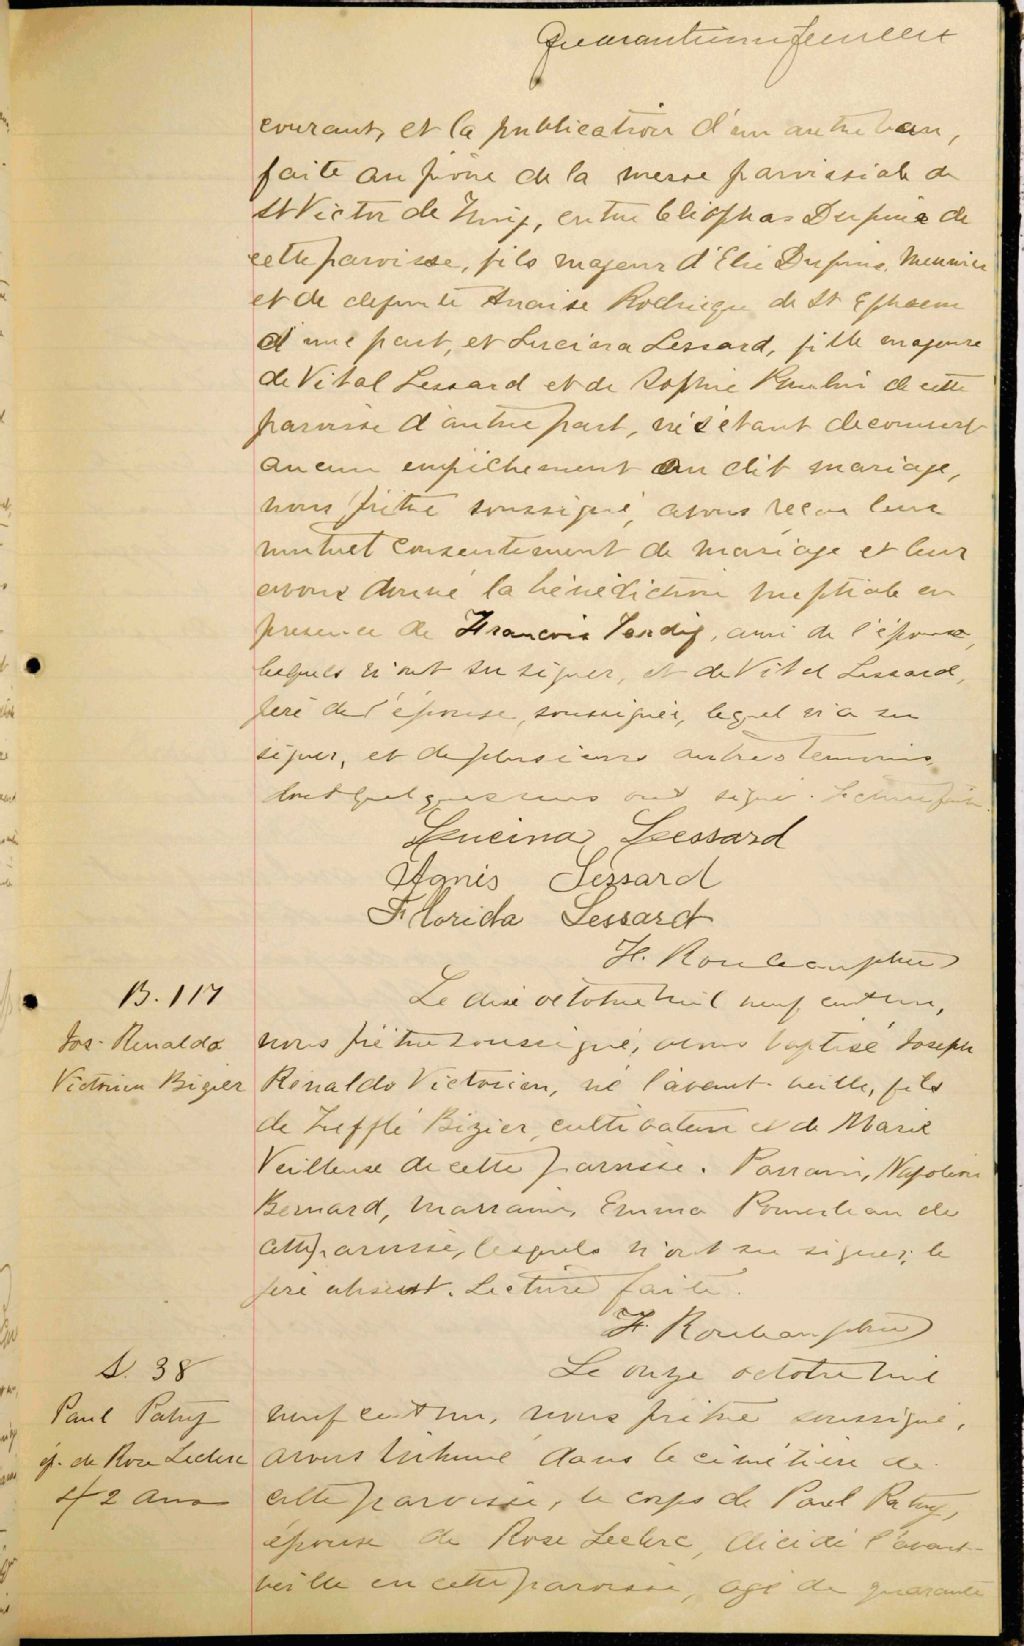 Quarantième feuillet
courant, et la publication d'un autre ban,
faite au prône de la messe paroissiale de
St Victor de Tring, entre Cléophas Dupuis de
cette paroisse, fils majeur d'Elie Dupuis, Meunier
et de défunte Anaïse Rodrigue de St Ephrem
d'une part, et Lucina Lessard, fille majeure
de Vital Lessard et de Sophie Poulin de cette
paroisse d'autre part, ne s'étant découvert
aucun empêchement au dit mariage,
nous prêtre soussigné, avons reçu leur
mutuel consentement de mariage et leur
avons donné la bénédiction nuptiale en
présence de Francois Tardif, ami de l'époux,
lequels n'ont su signer, et de Vital Lessard,
père de l'épouse, soussignée, lequel n'a su
signer, et de plusieurs autres temoins,
dont quelques uns ont signé. Lecture faite.
Lucina Lessard
Agnès Lessard
Florida Lessard
H. Rouleau ptre
B. 117
Jos. Renaldo
Victorien Bizier
Le dix octobre mil neuf cent un,
nous prêtre soussigné, avons baptisé Joseph
Renaldo Victorien, né l'avant-veille, fils
de Trefflé Bizier, cultivateur et de Marie
Veilleuse de cette paroisse. Parrain, Napoléon
Bernard, marraine, Emma Pomerleau de
cette paroisse, lesquels n'ont su signer, le
père absent. Lecture faite.
H. Rouleau ptre
S. 38
Paul Patry
ép. de Rose Leclerc
42 ans
Le onze octobre mil
neuf cent un, nous prêtre soussigné,
avons inhumé dans le cimetière de
cette paroisse, le corps de Paul Patry,
épouse de Rose Leclerc, décédé l'avant-
veille en cette paroisse, agé de quarante